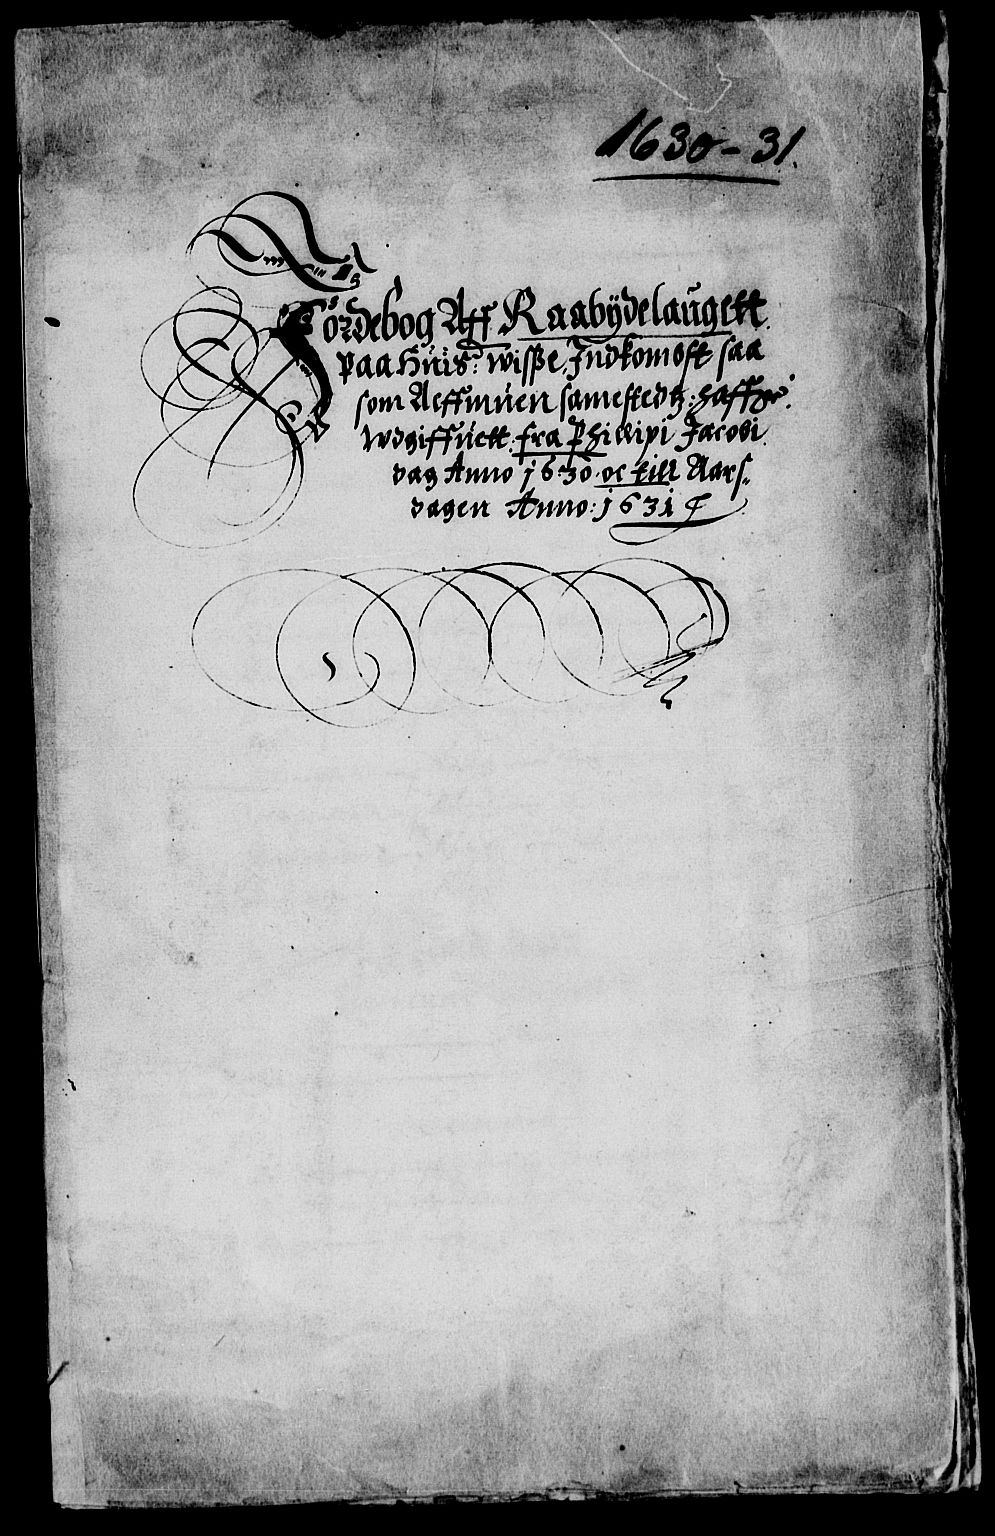 1630-31.
Jordebog Aff Raabÿdelaugett
paa Huis: wisße Indkomost saa
som Aeffmuen samestedtz: haffr
Wdgiffuett: fra Phillipi Jacobi
dag Anno 1630. oc till Aars-
dagen Anno: 1631